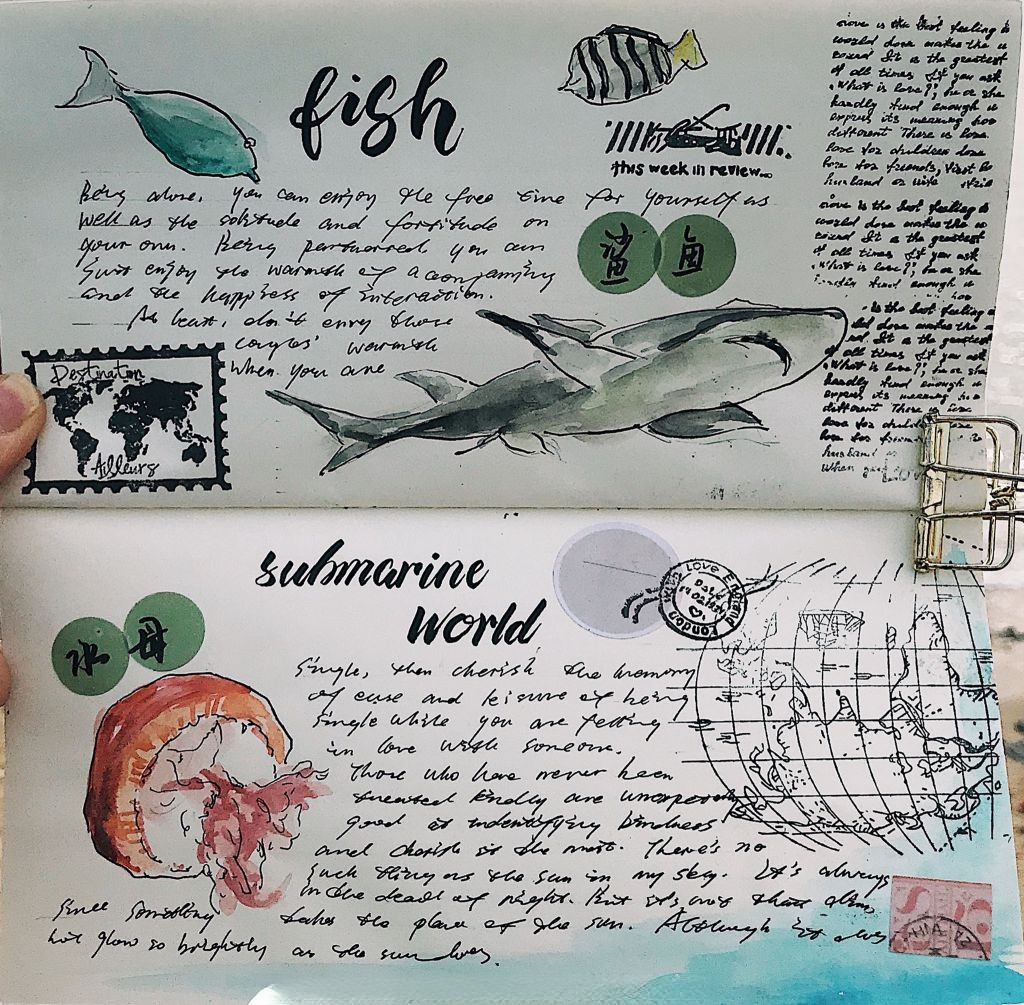 fish
this week in review...
Being alone, you can enjoy the free time for yourself as
well as the solitude and fortitude on
your own. Being partnered you can
just enjoy the warmth of accompanying
and the happiness of interaction.
At least, don't envy those
couples' warmth
when you are
鲨 鱼
Destination
Ailleurs
love is the best feeling in
world love makes the
round It is the greatest
of all times If you ask
"What is love?", he or she
hardly find enough
express its meaning
different There is love
love for children love
love for friends, first
husband or wife
love is the best feeling
world love makes the
round It is the greatest
of all times If you ask
"What is love?", he or she
hardly find enough
is the best feeling
love makes the
round It is the greatest
of all times If you ask
"What is love?", he or she
hardly find enough
express its meaning
different There is love
love for children
love for
husband
submarine
world
水 母
Love England
London
Single, then cherish the memory
of ease and leisure of being
single while you are getting
in love with someone.
Those who have never been
treated kindly are
good at indentifying kindness
and cherish it the most. There's no
such thing as the sun in my sky. It's always
in the dead of night. But it's not that
something
takes the place of the sun. Although it does
not glow so brightly as the sun does.